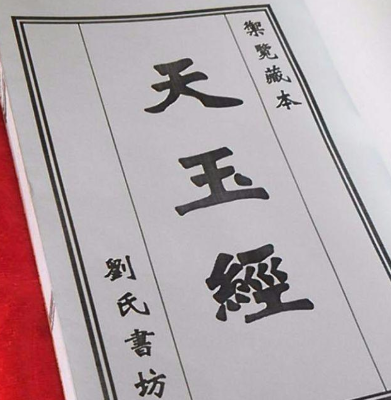 御覽藏本
天玉經
劉氏書坊